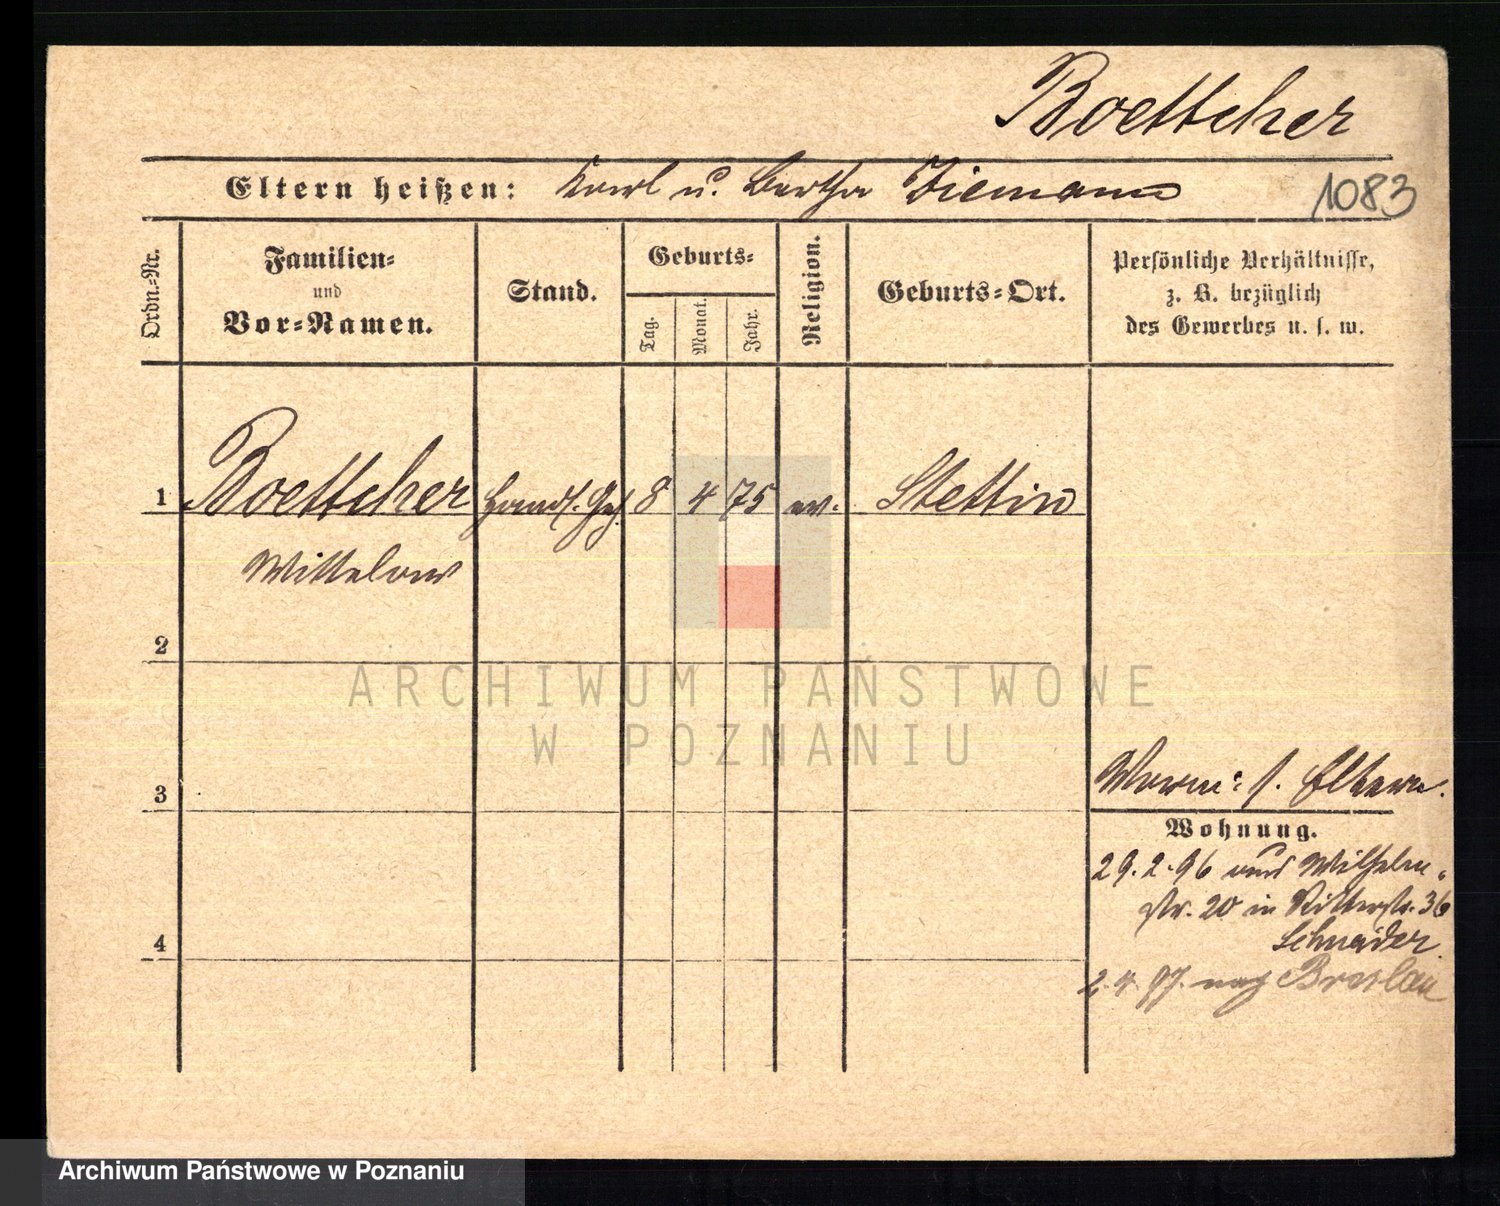 Boettcher
Eltern heißen: Karl u. Bertha Ziemann
1083
Ordn.-Nr.
Familien-
und
Vor-Namen.
Stand.
Geburts-
Tag.
Monat.
Jahr.
Religion.
Geburts-Ort.
Persönliche Verhältnisse,
z. B. bezüglich
des Gewerbes u. s. w.
1 Boettcher Handl. Geh. 8 4 75 ev. Stettin
2
3
4
s. Eltern.
Wohnung.
29.2.96 aus Wilhelm-
str. 20 in Ritterstr. 36
Schneider
2.4.97. nach Breslau
ARCHIWUM PAŃSTWOWE
W POZNANIU
Archiwum Państwowe w Poznaniu